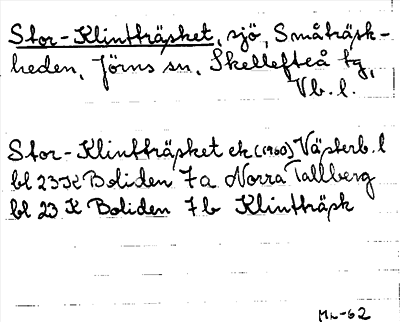 Stor-Klintträsket, sjö, Småträsk-
heden, Jörns sn, Skellefteå tg,
Vb. l.
Stor-Klintträsket ek (1960) Västerb. l
bl 23 K Boliden 7a Norra Tallberg
bl 23 K Boliden 7b Klintträsk
ML-62